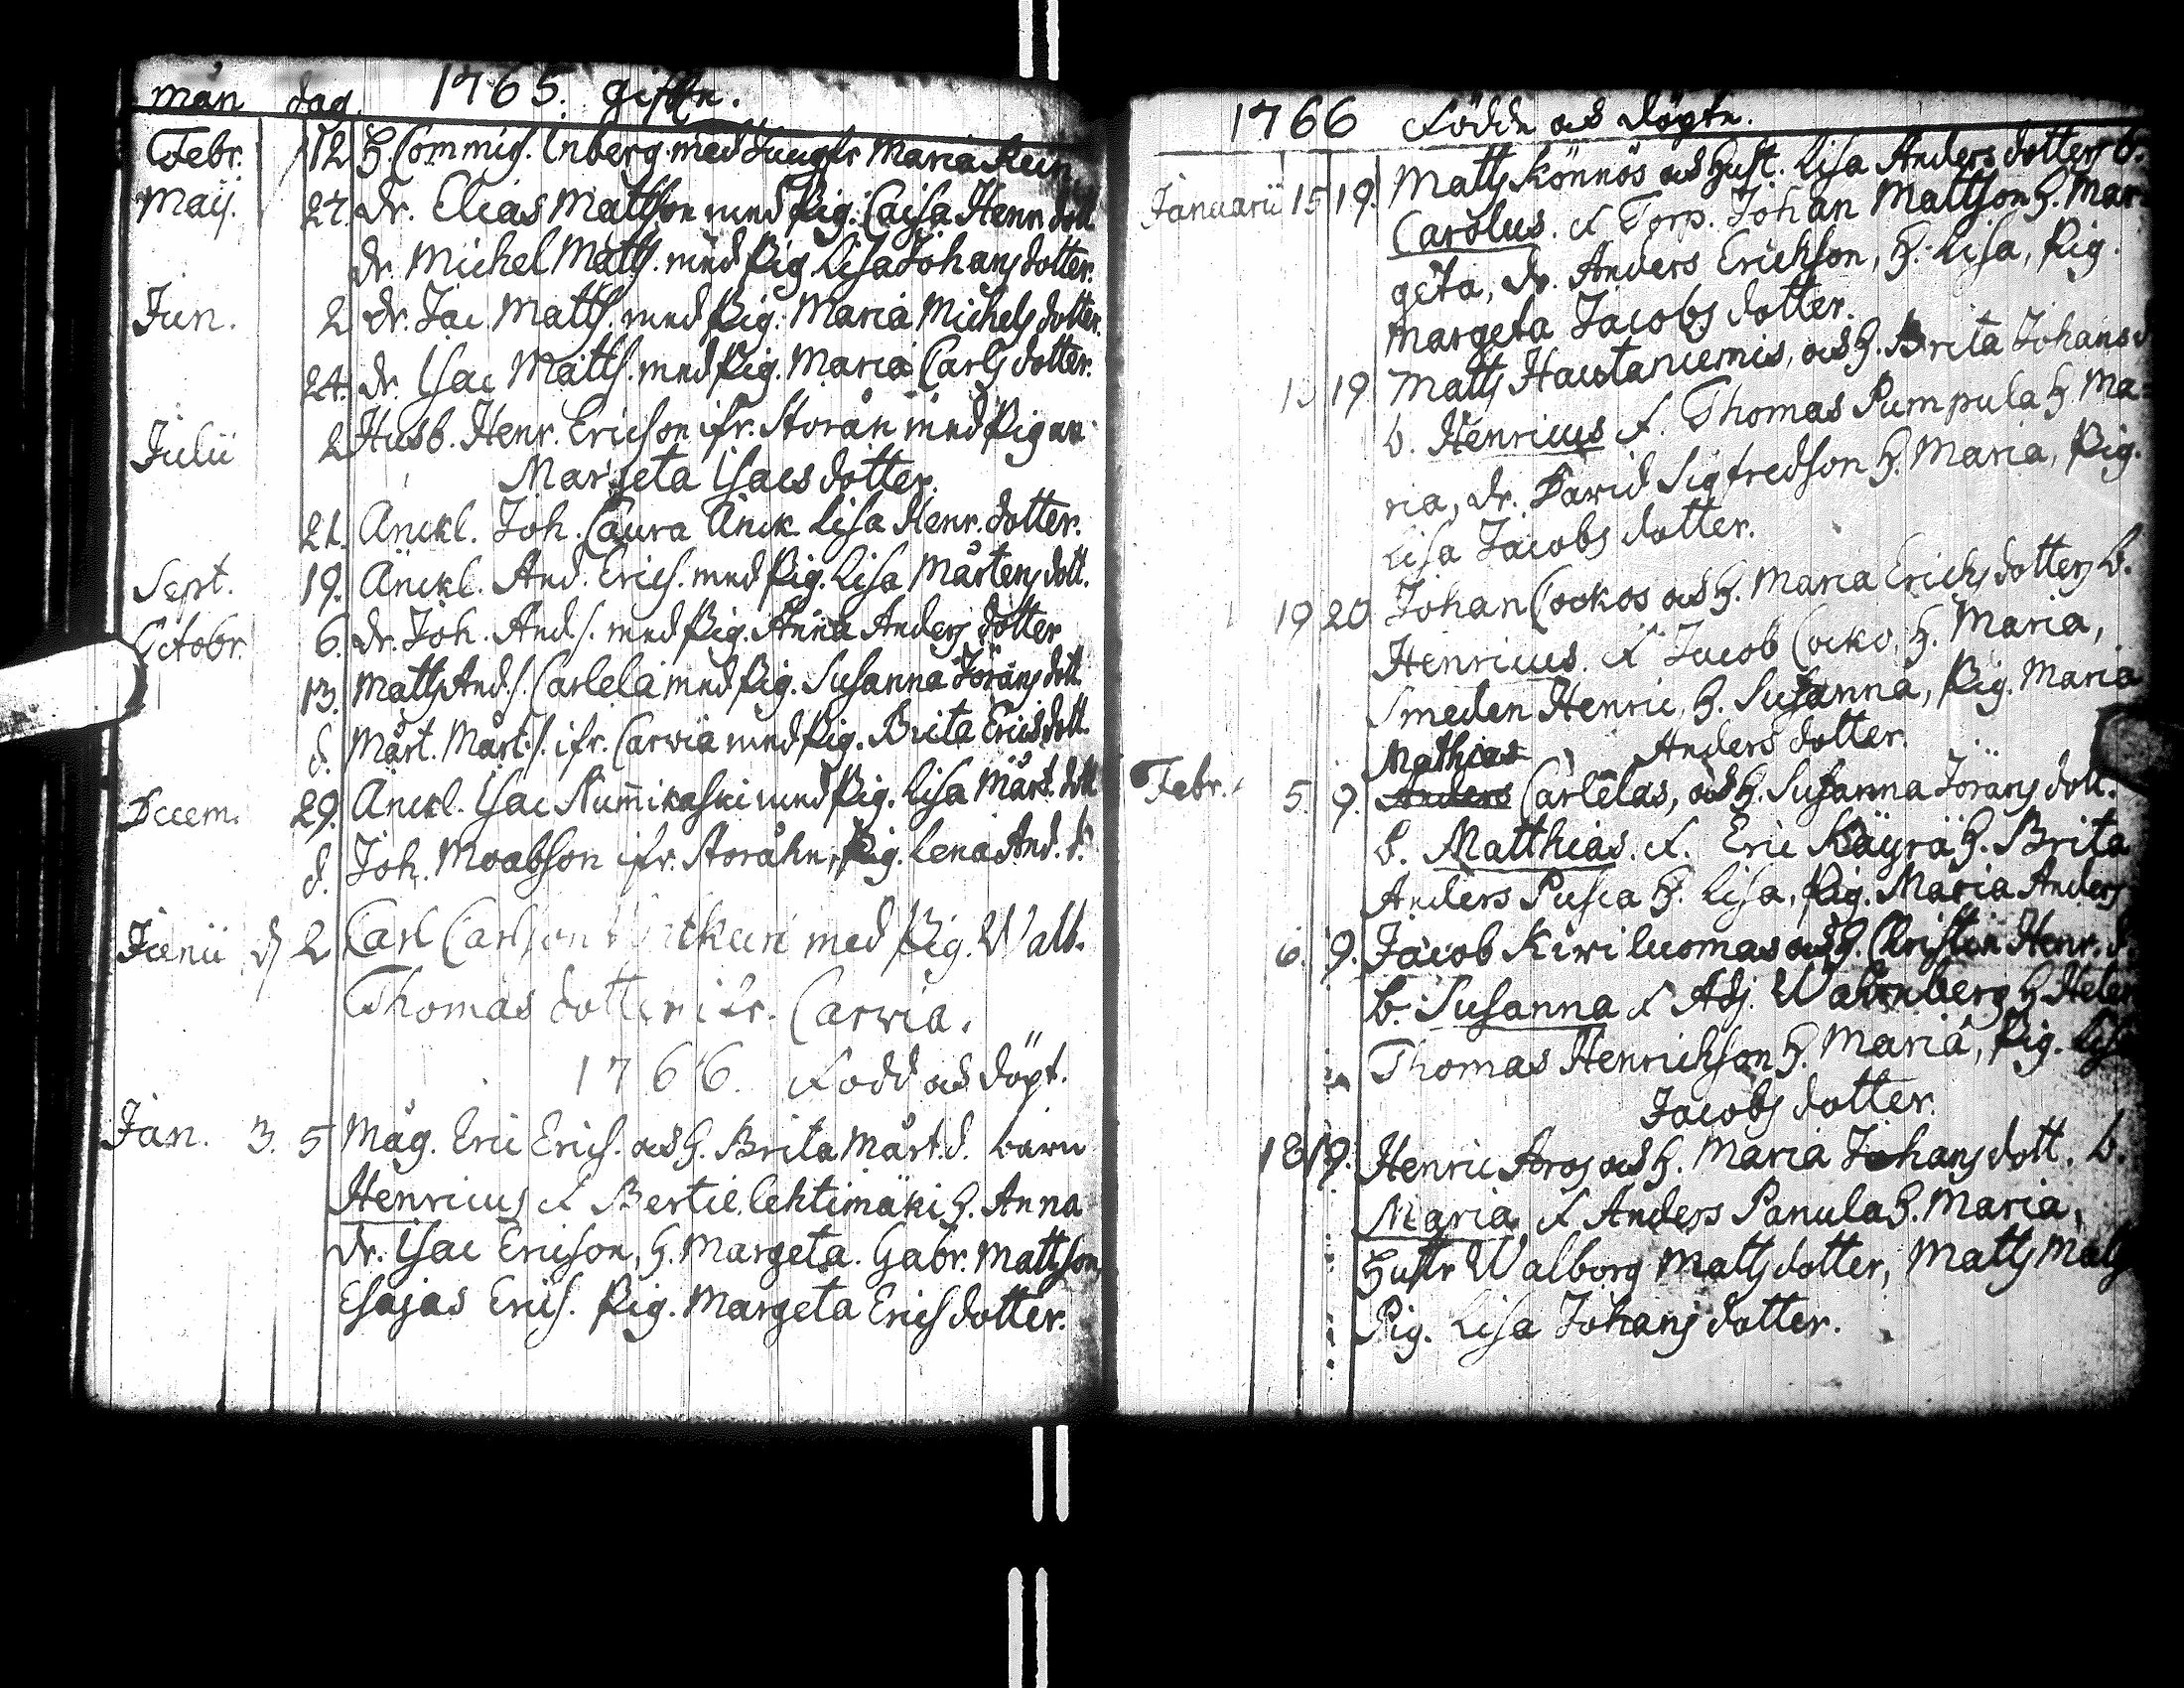 mån dag. 1765. gifte.
Febr. 12 H. Commis. Enberg med Jungfr Maria Rein
Maij. 27. dr. Elias Mattson med Pig. Caisa Henr. dott.
dr. Michel Matts. med Pig Lisa Johans dotter.
Jun. 2 dr. Jac. Matts. med Pig. Maria Michels dotter.
24. dr. Isac Matts. med Pig. Maria Carls dotter.
Julii 2 Husb. Henr. Ericson ifr. Storån med Pigan
Margeta Isacs dotter.
21. Änckl. Joh. Caura Änck. Lisa Henr. dotter.
Sept. 19. Änckl. And. Erics. med Pig. Lisa Mårtens dott.
Octobr. 6. dr. Joh. And.s. med Pig. Anna Anders dotter
13. Matts And.s. Carlela med Pig. Susanna Jörans dott.
d. Mårt. Mårt.s. ifr. Carvia med Pig. Brita Erics dott.
Decem. 29. Änckl. Isac Nummikoski med Pig. Lisa Mårt. dott
d. Joh. Moabson ifr. Storåhn, Pig. Lena And. d.
Junii d 2 Carl Carlson med Pig. Walb.
Thomas dotter ifr. Carvia.
1766. Född och döpt.
Jan. 3. 5 Måg. Eric Erics. och H. Brita Mårt. d. barn
Henricus f Bertil Lehtimäki H. Anna
dr. Isac Ericson, H. Margeta. Gabr. Mattson,
Esajas Erics. Pig. Margeta Erics dotter.
1766 Födde och döpte.
Januarii 15 19. Matts Könnös och Hust. Lisa Anders dotters b.
Carolus. f Torp. Johan Mattson H. Mar-
geta, dr. Anders Erichson, H. Lisa, Pig.
Margeta Jacobs dotter.
13 19 Matts Hautaniemis, och H. Brita Johans d
b. Henricus f. Thomas Pumpula H Ma-
ria, dr. David Sigfredson H. Maria, Pig.
Lisa Jacobs dotter.
19 20 Johan Cockos och H. Maria Erichs dotters b.
Henricus. f Jacob Cocko, H. Maria,
Smeden Henric, H. Susanna, Pig. Maria
Mathias Anders dotter.
Febr. 5. 9. Anders Carlelas, och H. Susanna Jörans dott.
b. Matthias. f. Eric Käyrä H. Brita
Anders Pusca H. Lisa, Pig. Maria Anders
6. 9. Jacob Kiviluomas och H. Christin Henr. d.
b. Susanna f Adj. Wahlnberg H Helen
Thomas Henrichson H. Maria, Pig. Lisa
Jacobs dotter.
18 19. Henric Aros och H. Maria Johans dott. b.
Maria f Anders Panula H. Maria,
Hustr Walborg Matts dotter, Matts Mats
Pig. Lisa Johans dotter.